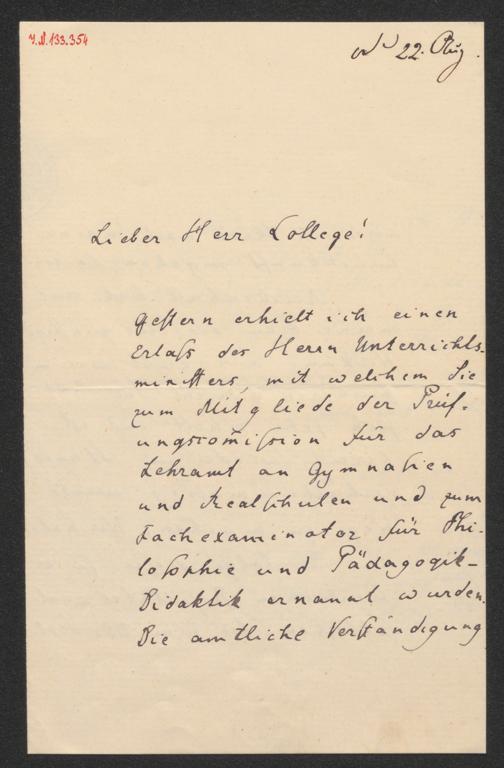 J.N. 133.354
22. Aug.
Lieber Herr College!
Gestern erhielt ich einen
Erlaß des Herrn Unterrichts-
ministers, mit welchem Sie
zum Mitgliede der Prüf-
ungscom̅ission für das
Lehramt an Gymnasien
und Realschulen und zum
Fachexaminator für Phi-
losophie und Pädagogik-
Didaktik ernannt wurden.
Die amtliche Verständigung